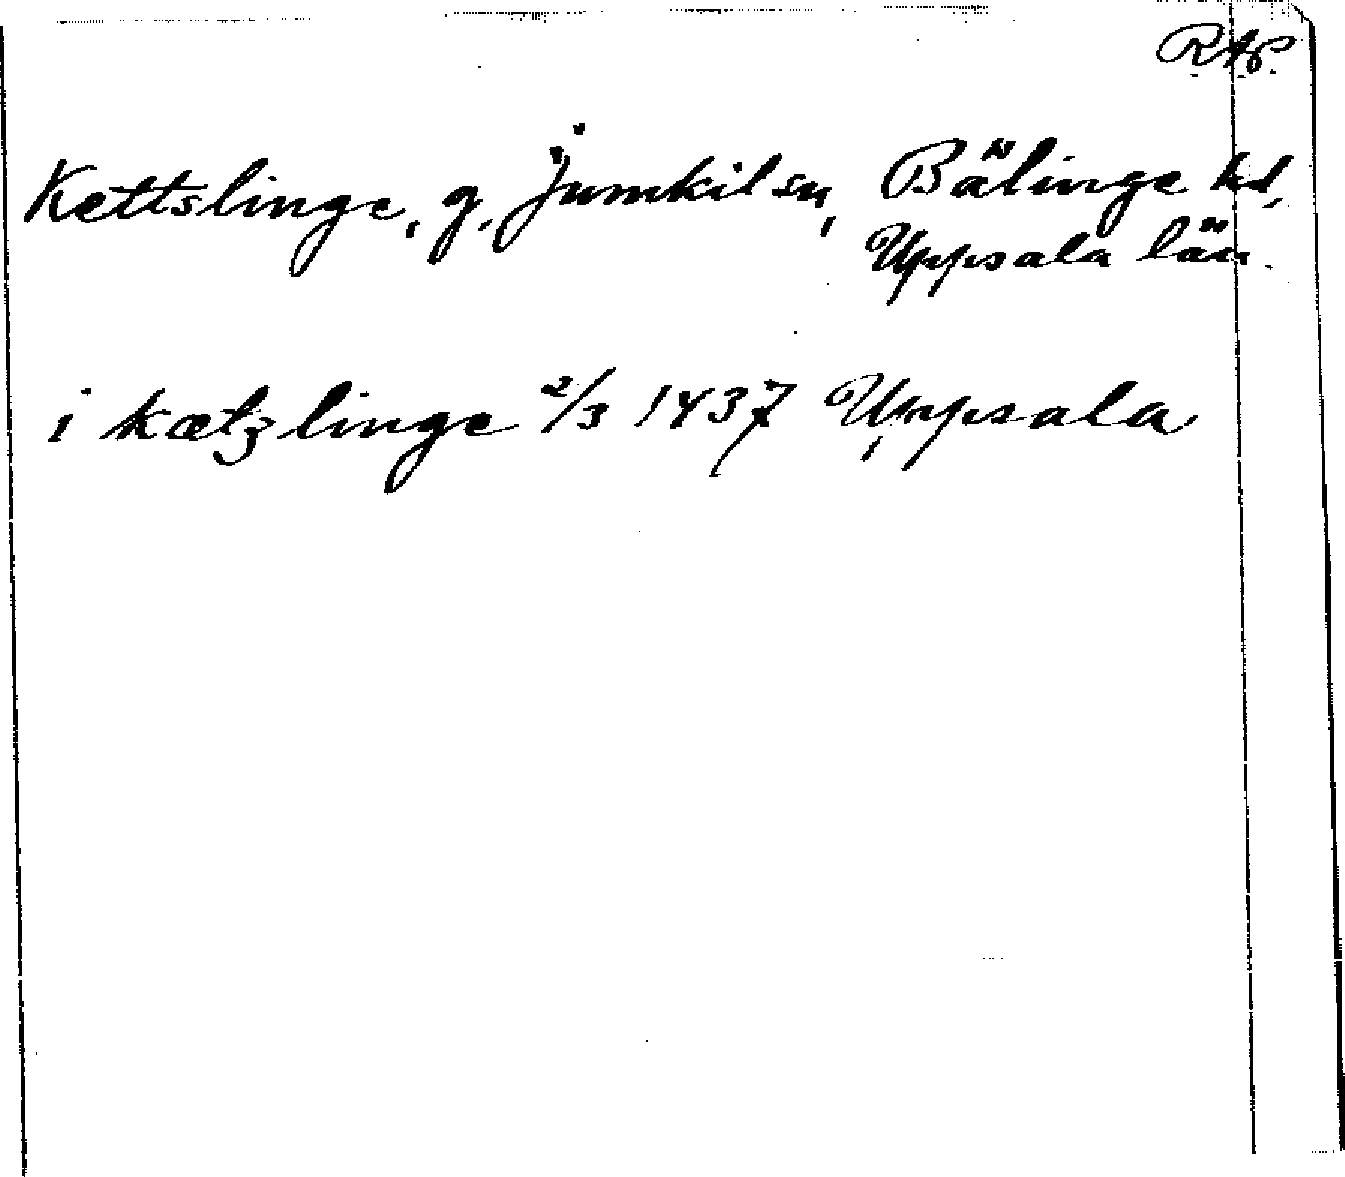 RAp.
Kettslinge, g, Jumkil sn, Bälinge hd,
Uppsala län.
i kætzlinge 2/3 1437 Uppsala